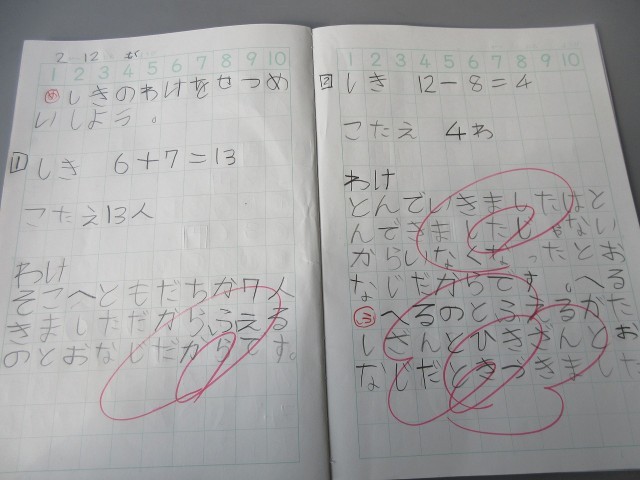 2 12 が
1 2 3 4 5 6 7 8 9 10
め しきのわけをせつめ
いしよう。
1 しき 6+7=13
こたえ13人
わけ
そこへともだちが7人
きましただからふえる
のとおなじだからです。
1 2 3 4 5 6 7 8 9 10
2 しき 12-8=4
こたえ 4わ
わけ
とんでいきましたはと
んできましたじゃない
からいなくなったとお
なじだからです。へる
ふ へるのとふえるがた
しざんとひきざんとお
なじだときづきました